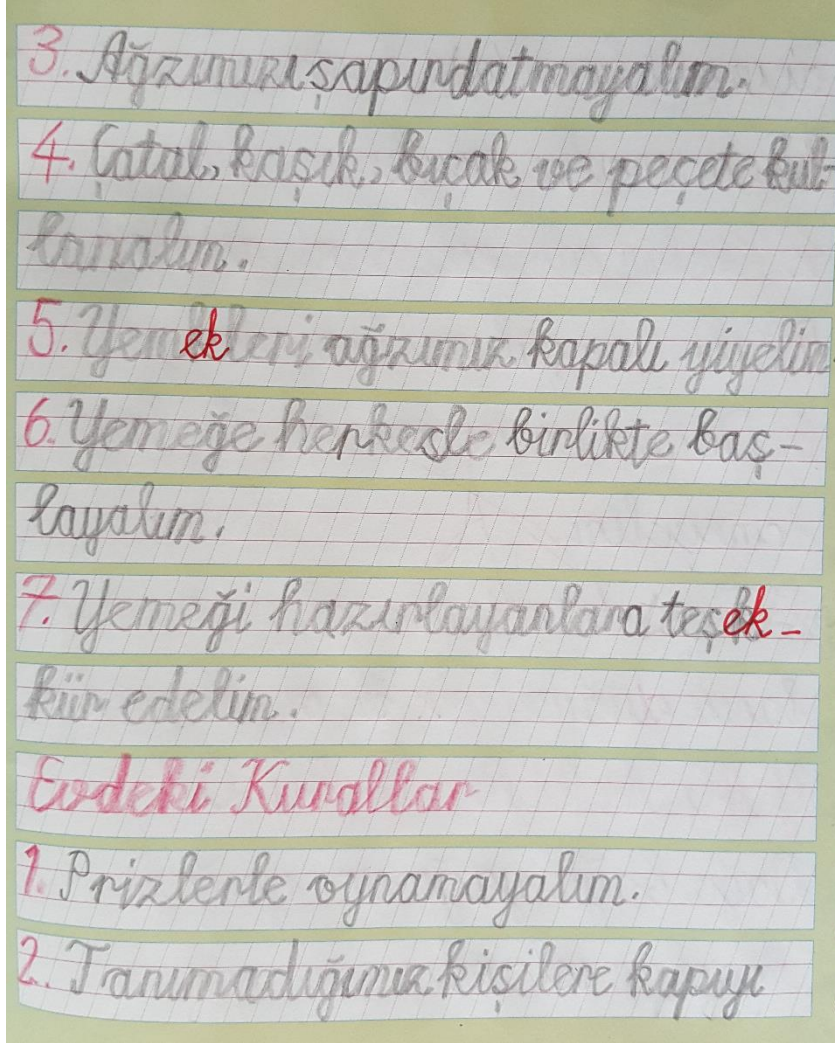 3. Ağzımızı şapırdatmayalım.
4. Çatal, kaşık, bıçak ve peçete kul-
lanalım.
5. Yemekleri ağzımız kapalı yiyelim
6. Yemeğe herkesle birlikte baş-
layalım.
7. Yemeği hazırlayanlara teşek-
kür edelim.
Evdeki Kurallar
1. Prizlerle oynamayalım.
2. Tanımadığımız kişilere kapıyı